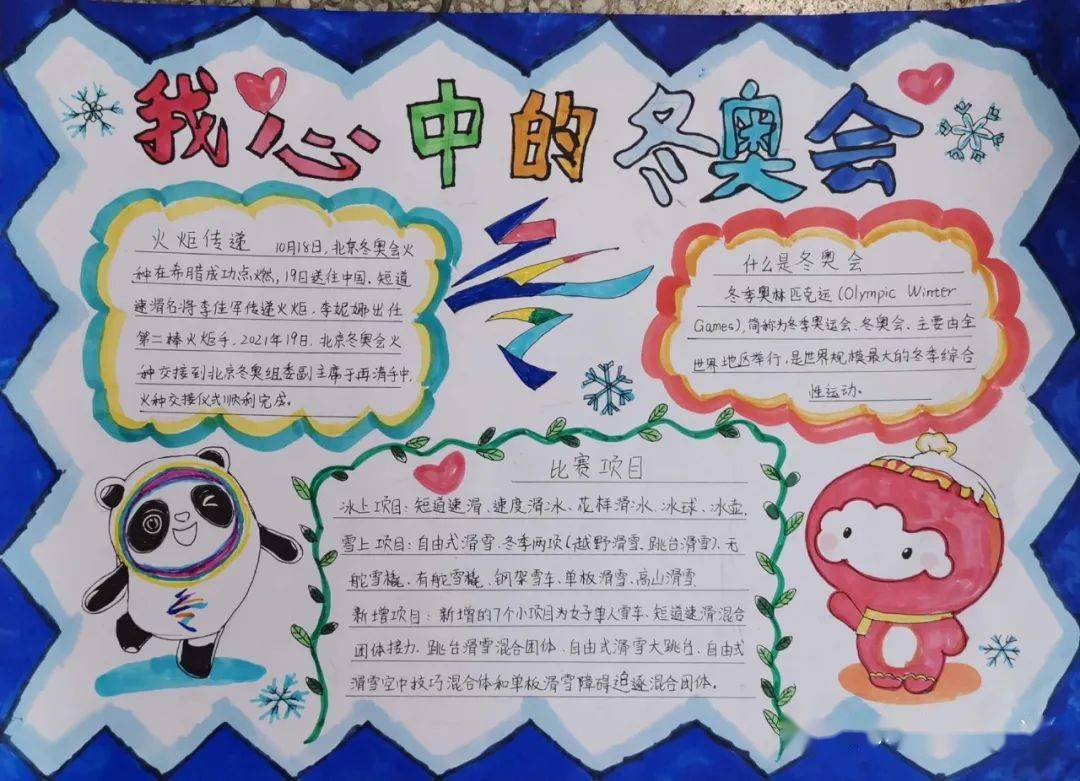 我心中的冬奥会
火炬传递 10月18日,北京冬奥会火
种在希腊成功点燃,19日送往中国.短道
速滑名将李佳军传递火炬.李妮娜出任
第二棒火炬手.2021年19日.北京冬奥会火
种交接到北京冬奥组委副主席于再清手中,
火种交接仪式顺利完成。
什么是冬奥会
冬季奥林匹克运(Olympic Winter
Games),简称为冬季奥运会、冬奥会.主要由全
世界地区举行,是世界规模最大的冬季综合
性运动。
比赛项目
冰上项目:短道速滑、速度滑冰、花样滑冰、冰球、冰壶,
雪上项目:自由式滑雪.冬季两项(越野滑雪、跳台滑雪)、无
舵雪橇、有舵雪橇、钢架雪车、单板滑雪、高山滑雪
新增项目:新增的7个小项目为女子单人雪车、短道速滑混合
团体接力、跳台滑雪混合团体、自由式滑雪大跳台、自由式
滑雪空中技巧混合体和单板滑雪障碍追逐混合团体。